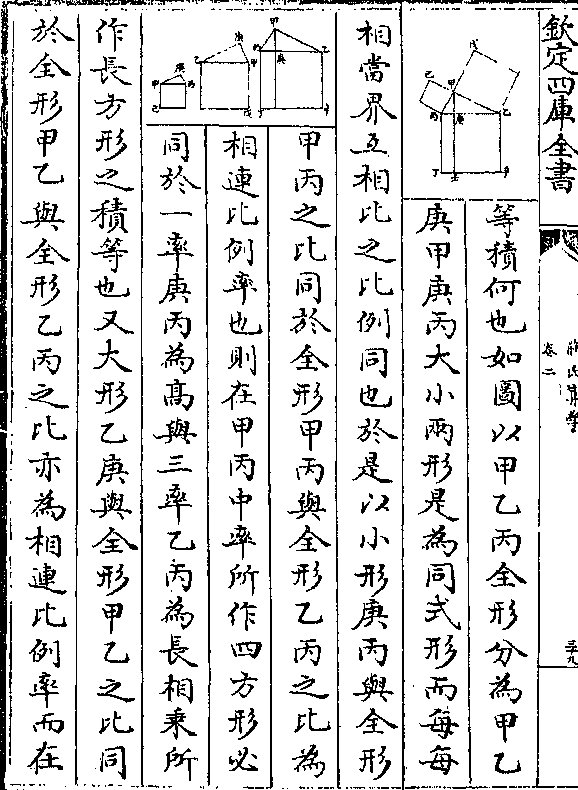 欽定四庫全書
卷二
等積何也如圖以甲乙丙全形分為甲乙
庚甲庚丙大小兩形是為同式形而每每
相當界互相比之比例同也於是以小形庚丙與全形
甲丙之比同於全形甲丙與全形乙丙之比為
相連比例率也則在甲丙中率所作四方形必
同於一率庚丙為髙與三率乙丙為長相乘所
作長方形之積等也又大形乙庚與全形甲乙之比同
於全形甲乙與全形乙丙之比亦為相連比例率而在